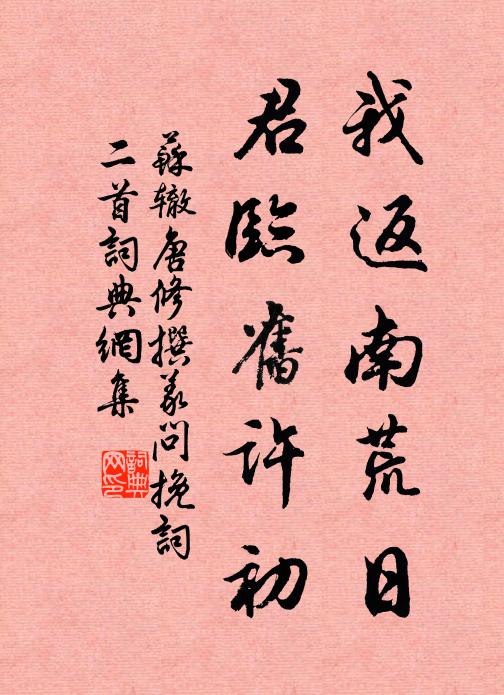 我返南荒日
君臨舊許初
蘇辙唐修撰義問挽詞
二首詞典網集
詞典
网印